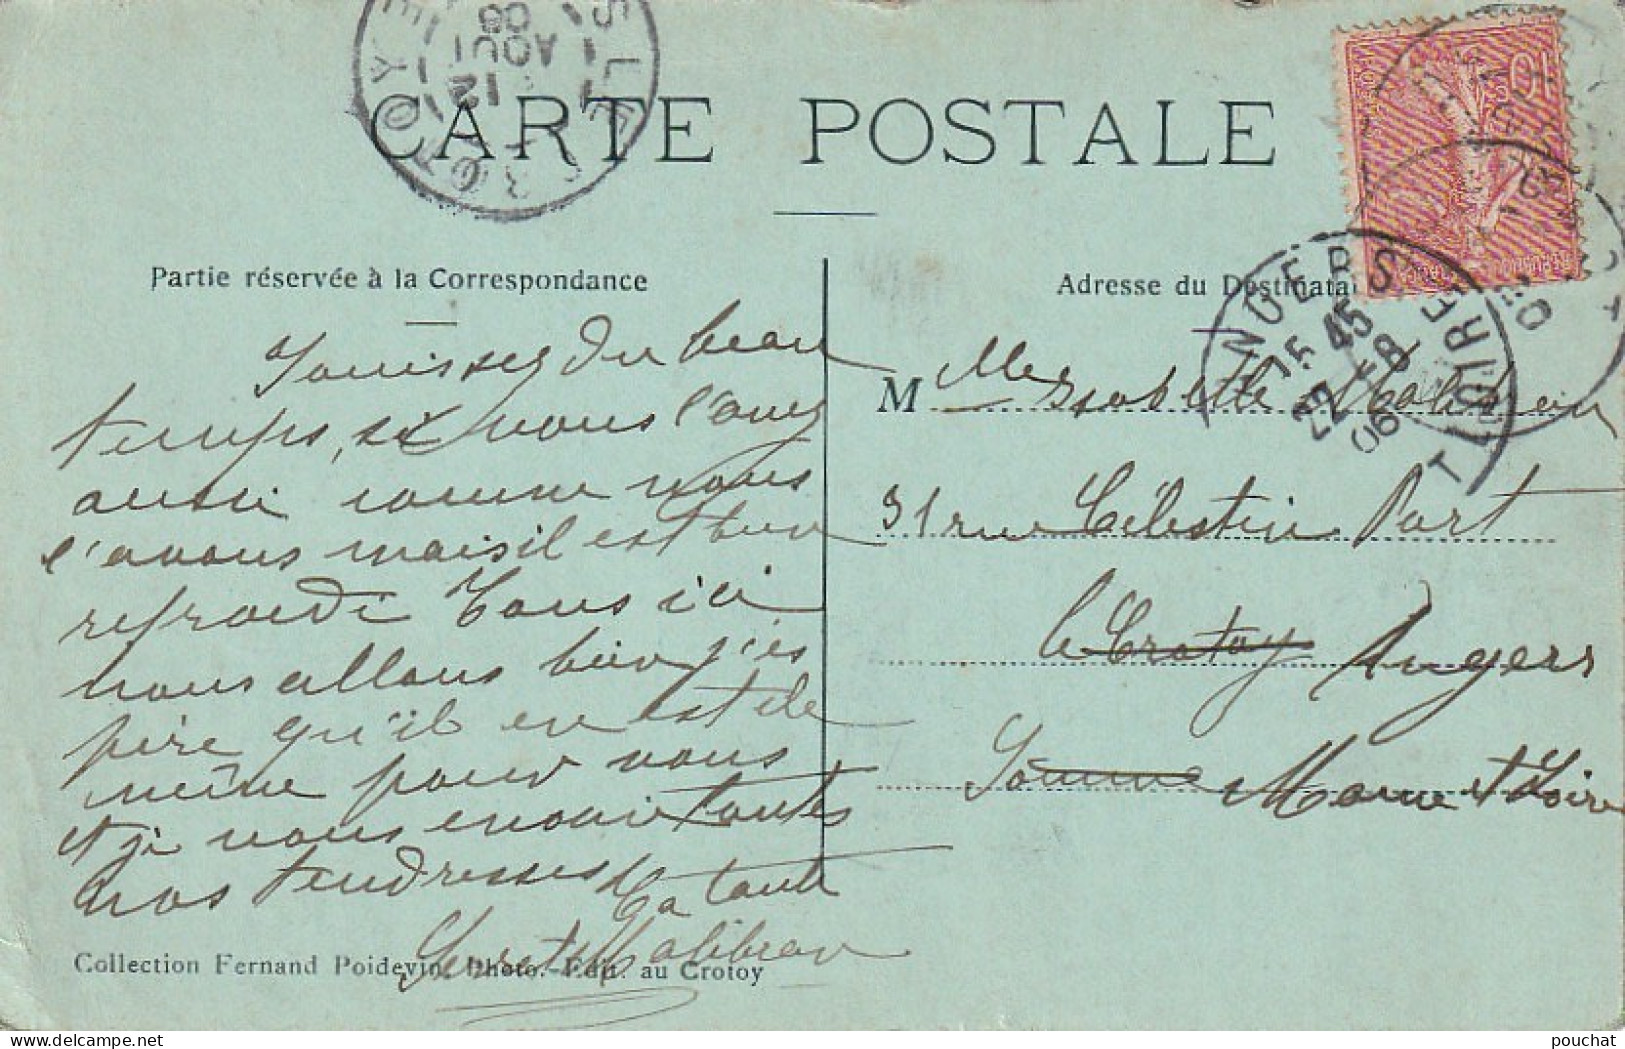 CARTE POSTALE
Partie réservée à la Correspondance
Adresse du Destinatai
Jouissez du beau
temps, si vous l'avez
aussi comme nous
l'avons mais il est bien
refroidi Tous ici
nous allons bien j'es
père qu'il en est de
même pour vous
et je vous envoie toutes
nos tendresses
Ta tante
Malibran
M Mlle Isabelle Malibran
31 rue Célestin Port
le Crotoy Angers
Somme Maine et Loire
Collection Fernand Poidevin, Photo.-Edit. au Crotoy
12
AOUT
06
ANGERS
15 45
22 -8
06
T LOIRE
10
pouchat